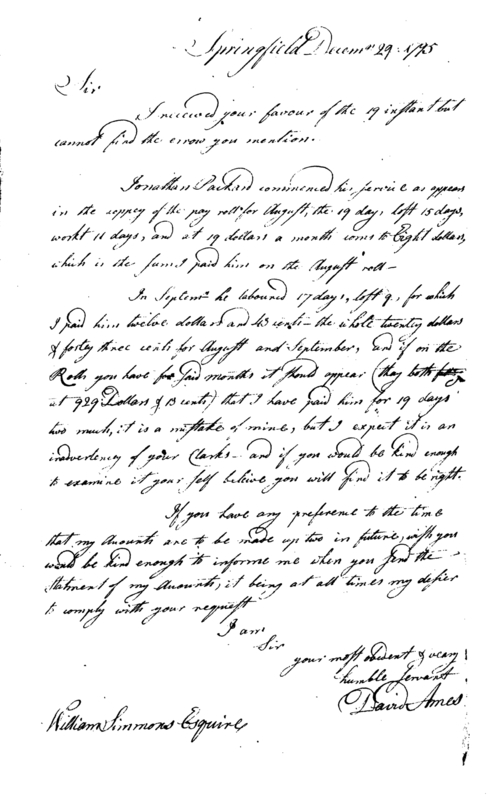 Springfield Decemr 29. 1795
Sir
I received your favour of the 19 instant but
cannot find the errow you mention.
Jonathan Packard commenced his service as appears
in the coppey of the pay roll for August, the 19 day, lost 15 days,
workt 11 days, and at 19 dollars a month coms to Eight dollars,
which is the sum I paid him on the August roll -
In Septemr he laboured 17 days, lost 9, for which
I paid him twelve dollars and 43 cents - the whole twenty dollars
& forty three cents for August and September, and if on the
Rolls you have for said months it should appear (they both
at 929 Dollars & 13 cents) that I have paid him for 19 days
two much, it is a mistake of mine, but I expect it is an
inadvertency of your Clarks - and if you would be kind enough
to examine it your self beleive you will find it to be right.
If you have any preference to the time
that my Acounts are to be made up two in future, wish you
would be kind enough to informe me when you send the
statment of my Acounts, it being at all times my desier
to comply with your request
I am
Sir
your most obedent & veary
humble servant
David Ames
William Simmons Esquire